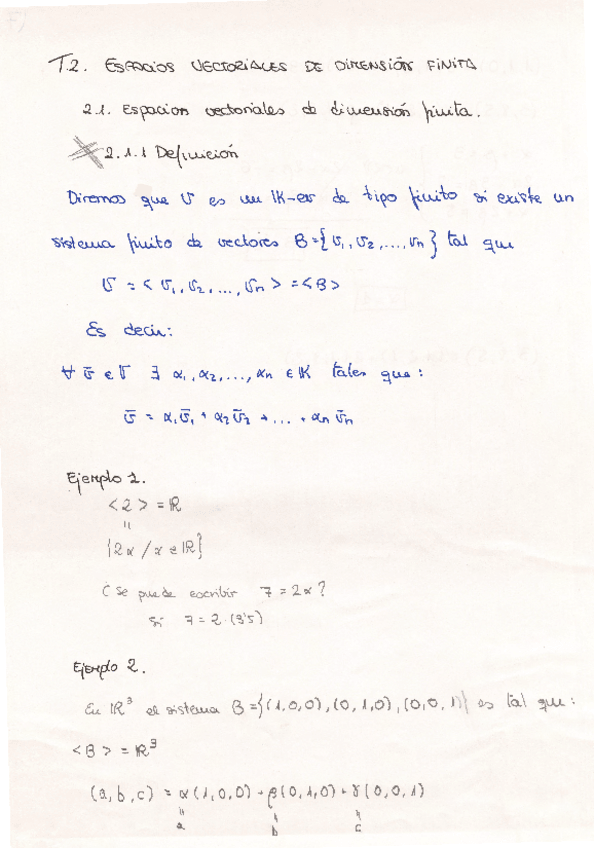 T.2. ESPACIOS VECTORIALES DE DIMENSIÓN FINITA
2.1. Espacios vectoriales de dimensión finita.
2.1.1 Definición
Diremos que V es un IK-ev de tipo finito si existe un
sistema finito de vectores B={v₁,v₂,...,vn} tal que
V = < v₁,v₂,...,vn > = <B>
Es decir:
∀ v̄ ∈ V ∃ α₁,α₂,...,αn ∈ IK tales que:
v̄ = α₁v̄₁ + α₂v̄₂ + ... + αn v̄n
Ejemplo 1.
<2> = IR
"
{2α / α ∈ IR}
¿Se puede escribir 7 = 2α?
Sí 7 = 2·(3'5)
Ejemplo 2.
En IR³ el sistema B={(1,0,0),(0,1,0),(0,0,1)} es tal que:
<B> = IR³
(a,b,c) = α(1,0,0) + β(0,1,0) + γ(0,0,1)
" " "
a b c